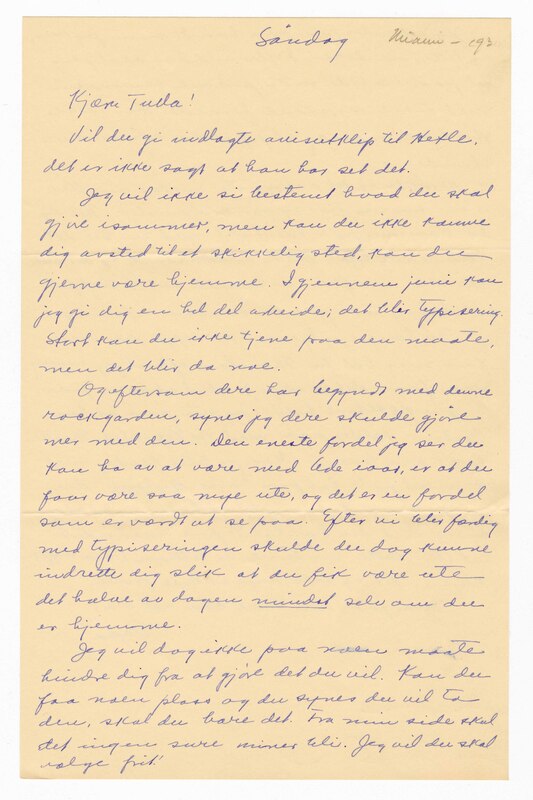 Søndag Miami - 193
Kjære Tulla!
Vil du gi indlagte avisutklip til Hetle,
det er ikke sagt at han har set det.
Jeg vil ikke si bestemt hvad du skal
gjøre isommer, men kan du ikke komme
dig avsted til et skikkelig sted, kan du
gjerne være hjemme. I gjennem juni kan
jeg gi dig en hel del arbeide; det blir typisering.
Stort kan du ikke tjene paa den maate,
men det blir da noe.
Og eftersom dere har begyndt med denne
rockgarden, synes jeg dere skulde gjøre
mer med den. Den eneste fordel jeg ser du
kan ha av at være med iaar, er at du
faar være saa mye ute, og det er en fordel
som er værdt at se paa. Efter vi blir færdig
med typiseringen skulde du dog kunne
indrette dig slik at du fik være ute
det halve av dagen mindst selv om du
er hjemme.
Jeg vil dog ikke paa noen maate
hindre dig fra at gjøre det du vil. Kan du
faa noen plass og du synes du vil ta
den, skal du bare det. Fra min side skal
det ingen sure miner bli. Jeg vil du skal
vælge frit!